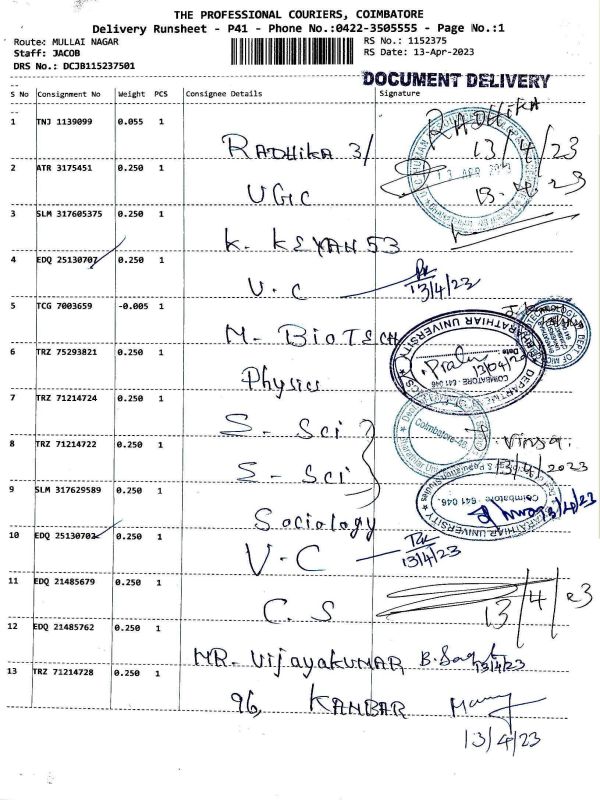 THE PROFESSIONAL COURIERS, COIMBATORE
Delivery Runsheet - P41 - Phone No.:0422-3505555 - Page No.:1
Route: MULLAI NAGAR
Staff: JACOB
DRS No.: DCJB115237501
RS No.: 1152375
RS Date: 13-Apr-2023
DOCUMENT DELIVERY
S No Consignment No Weight PCS Consignee Details Signature
1 TNJ 1139099 0.055 1 RADHIKA 3/ RADHIKA 13/4/23
13 APR 2023
13.4.23
2 ATR 3175451 0.250 1 UGC
3 SLM 317605375 0.250 1 K. KEYAN 53
4 EDQ 25130707 0.250 1 V.C 13/4/23
5 TCG 7003659 -0.005 1 M-BIOTECH
BHARATHIAR UNIVERSITY
Date:
13/04/23
COIMBATORE 641 046
6 TRZ 75293821 0.250 1 Physics
7 TRZ 71214724 0.250 1 S-Sci
Coimbatore-46
8 TRZ 71214722 0.250 1 S-Sci 13/4/2023
9 SLM 317629589 0.250 1 Sociology
Coimbatore
641 046.
BHARATHIAR UNIVERSITY
10 EDQ 25130702 0.250 1 V-C 13/4/23
11 EDQ 21485679 0.250 1 C.S 13/4/23
12 EDQ 21485762 0.250 1 MR. Vijayakumar 13/4/23
13 TRZ 71214728 0.250 1 96, KANBAR
13/4/23